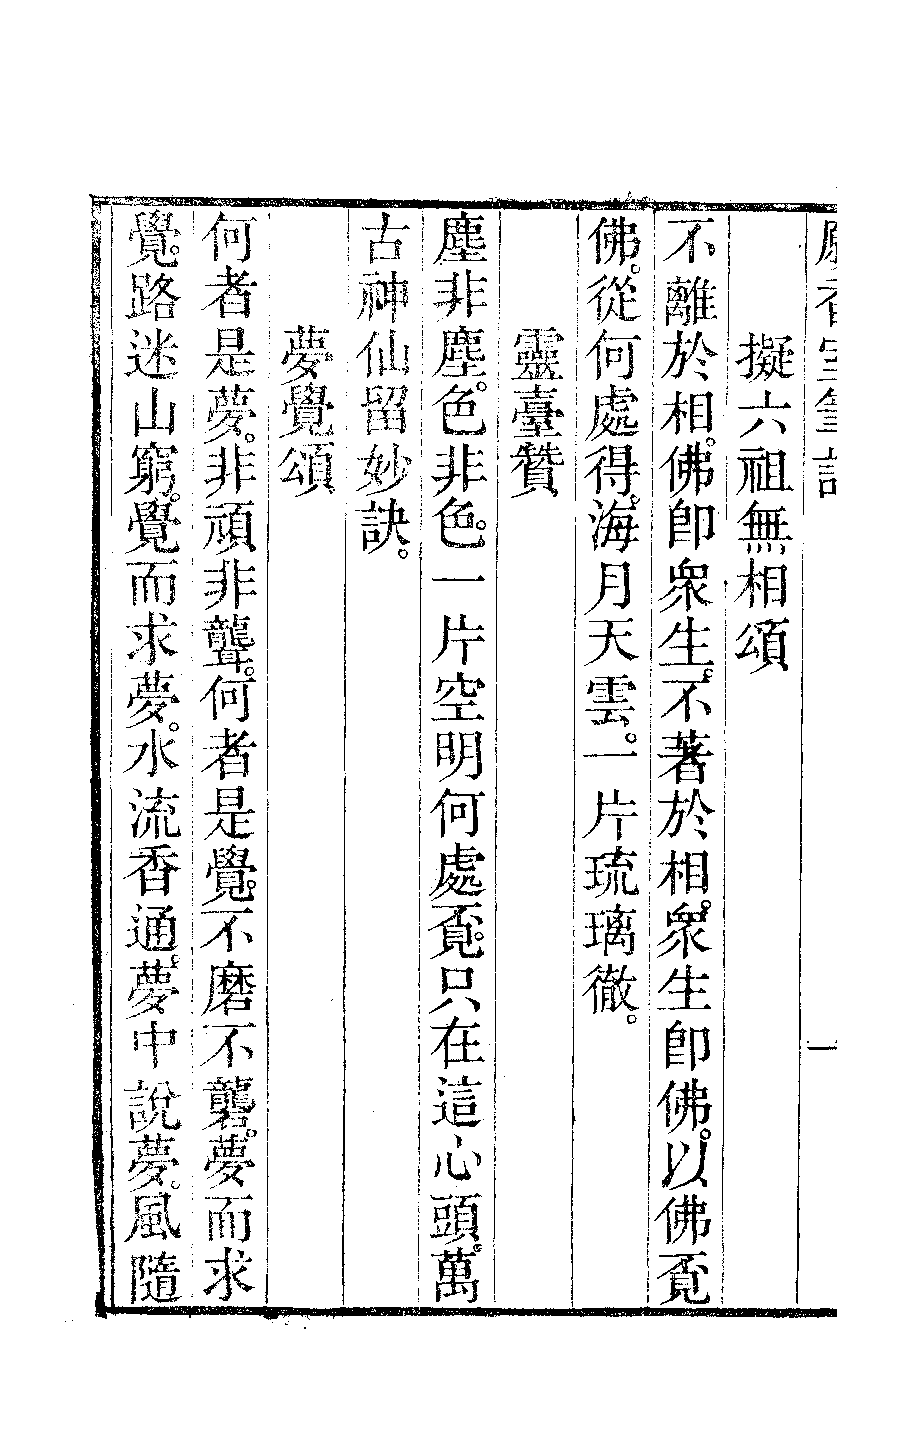 擬六祖無相頌
不離於相。佛卽衆生。不著於相。衆生卽佛。以佛覔
佛。從何處得。海月天雲。一片琉璃徹。
靈臺贊
塵非塵。色非色。一片空明何處覔。只在這心頭。萬
古神仙留妙訣。
夢覺頌
何者是夢。非頑非聾。何者是覺。不磨不礱。夢而求
覺。路迷山窮。覺而求夢。水流香通。夢中說夢。風隨